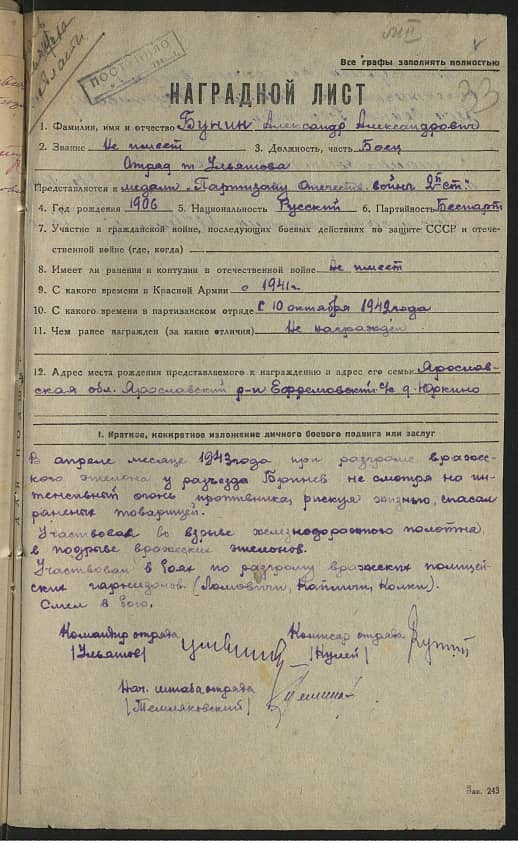 ПОСТУПИЛО
33
Все графы заполнять полностью
НАГРАДНОЙ ЛИСТ
1. Фамилия, имя и отчество Бунин Александр Александрович
2. Звание Не имеет 3. Должность, часть Боец
Отряд т. Ульяшова
Представляется к медали "Партизану Отечеств. войны 2й ст."
4. Год рождения 1906 5. Национальность Русский 6. Партийность Беспарт
7. Участие в гражданской войне, последующих боевых действиях по защите СССР и отече-
ственной войне (где, когда)
8. Имеет ли ранения и контузии в отечественной войне Не имеет
9. С какого времени в Красной Армии с 1941 г.
10. С какого времени в партизанском отряде С 10 октября 1942 года
11. Чем ранее награжден (за какие отличия) Не награжден
12. Адрес места рождения представляемого к награждению и адрес его семьи Ярослав-
ская обл. Ярославский р-н Ефремовский с/с д. Юркино
I. Краткое, конкретное изложение личного боевого подвига или заслуг
В апреле месяце 1943 года при разгроме вражес-
кого эшелона у разъезда не смотря на ин-
тенсивный огонь противника, рискуя жизнью, спасал
раненых товарищей.
Участвовал во взрыве железнодорожного полотна,
в подрыве вражеских эшелонов.
Участвовал в боях по разгрому вражеских полицей-
ских гарнизонов. (Ломовичи, Копличи, Колки).
Смел в бою.
Командир отряда Комиссар отряда
/Ульяшов/ /Кулей/
Нач. штаба отряда
/Темляковский/
Зак. 243